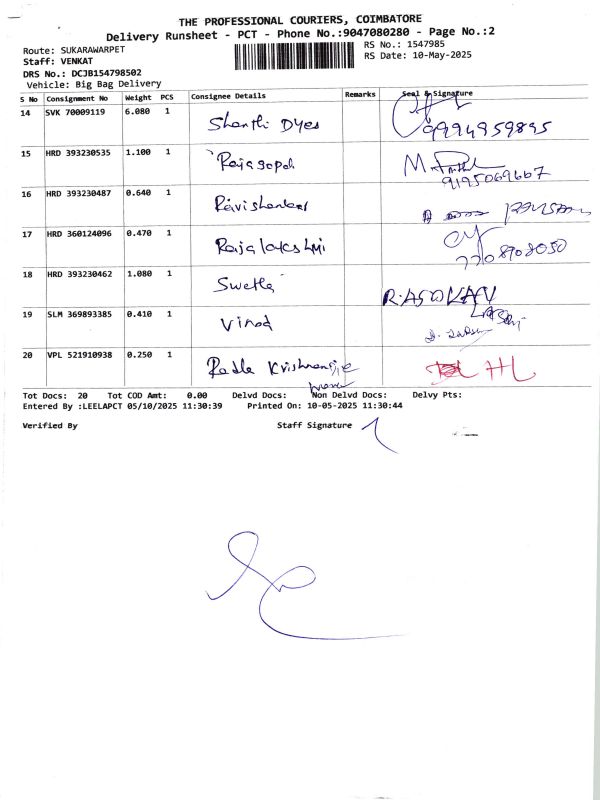 THE PROFESSIONAL COURIERS, COIMBATORE
Delivery Runsheet - PCT - Phone No.:9047080280 - Page No.:2
Route: SUKARAWARPET
RS No.: 1547985
Staff: VENKAT
RS Date: 10-May-2025
DRS No.: DCJB154798502
Vehicle: Big Bag Delivery
S No Consignment No Weight PCS Consignee Details Remarks Seal & Signature
14 SVK 70009119 6.080 1 Shanthi Dyes 9994959895
15 HRD 393230535 1.100 1 Rajagopal 9195069667
16 HRD 393230487 0.640 1 Ravishankar
17 HRD 360124096 0.470 1 Rajalakshmi 7708908050
18 HRD 393230462 1.080 1 Swetha R.ASOKAN
19 SLM 369893385 0.410 1 Vinod
20 VPL 521910938 0.250 1 Radha
Tot Docs: 20 Tot COD Amt: 0.00 Delvd Docs: Non Delvd Docs: Delvy Pts:
Entered By :LEELAPCT 05/10/2025 11:30:39 Printed On: 10-05-2025 11:30:44
Verified By Staff Signature